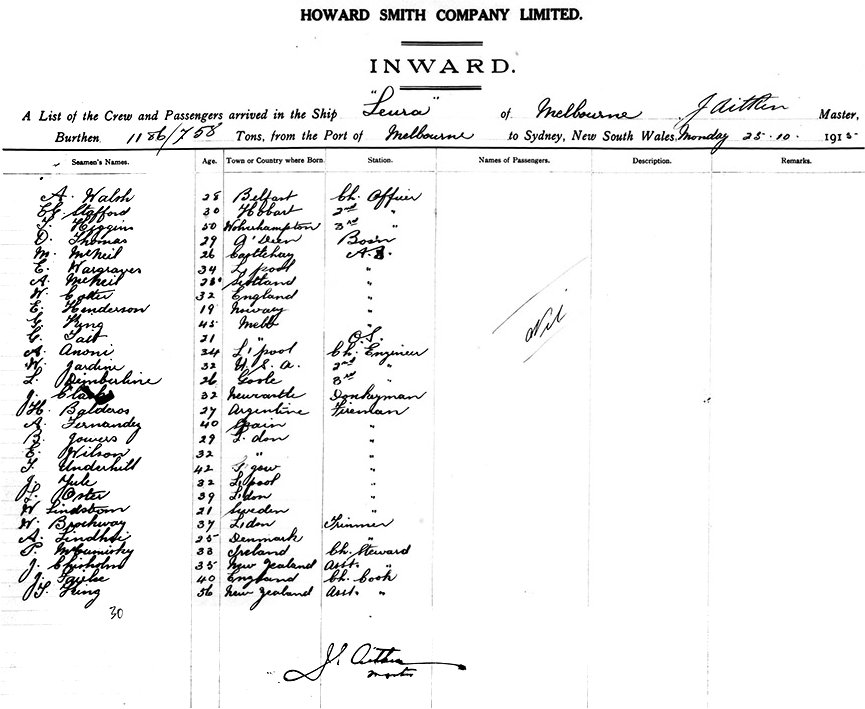 HOWARD SMITH COMPANY LIMITED.
INWARD.
A List of the Crew and Passengers arrived in the Ship "Leura" of Melbourne J Aitken Master,
Burthen 1186/758 Tons, from the Port of Melbourne to Sydney, New South Wales, Monday 25.10.1915
Seamen's Names. Age. Town or Country where Born Station. Names of Passengers. Description. Remarks.
A. Walsh 28 Belfast Ch. Officer
Stafford 30 Hobart 2nd "
T. Higgins 50 Wolverhampton 3rd "
D. Thomas 29 A'Deen Bosn
M. McNeil 26 Castlebay A.B.
E. Wargraves 34 L'pool "
A. McNeil 28 Scotland "
W. 32 England "
E. Henderson 19 Norway "
King 45 Melb "
21 " O.S.
A. Anoni 34 L'pool Ch. Engineer
W. Jardine 32 U.S.A. 2nd "
L. Dimberline 26 Goole 3rd "
J. Clark 32 Newcastle Donkeyman
H. Balderos 27 Argentine Fireman
A. Fernandez 40 Spain "
B. Jowers 29 L'don "
E. Wilson 32 " "
T. Underhill 42 G'gow "
J. Yule 32 L'pool "
L. Oster 39 L'don "
W Lindstrom 21 Sweden "
W. Brockway 37 L'don Trimmer
A. 25 Denmark "
P. 33 Ireland Ch. Steward
J. Chisholm 35 New Zealand Asst. "
J. 40 England Ch. Cook
T. King 56 New Zealand Asst. "
Nil
30
J. Aitken
Master